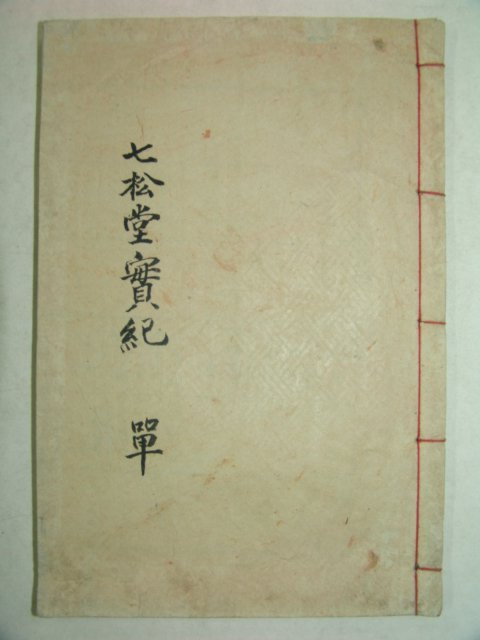 七松堂實紀 單